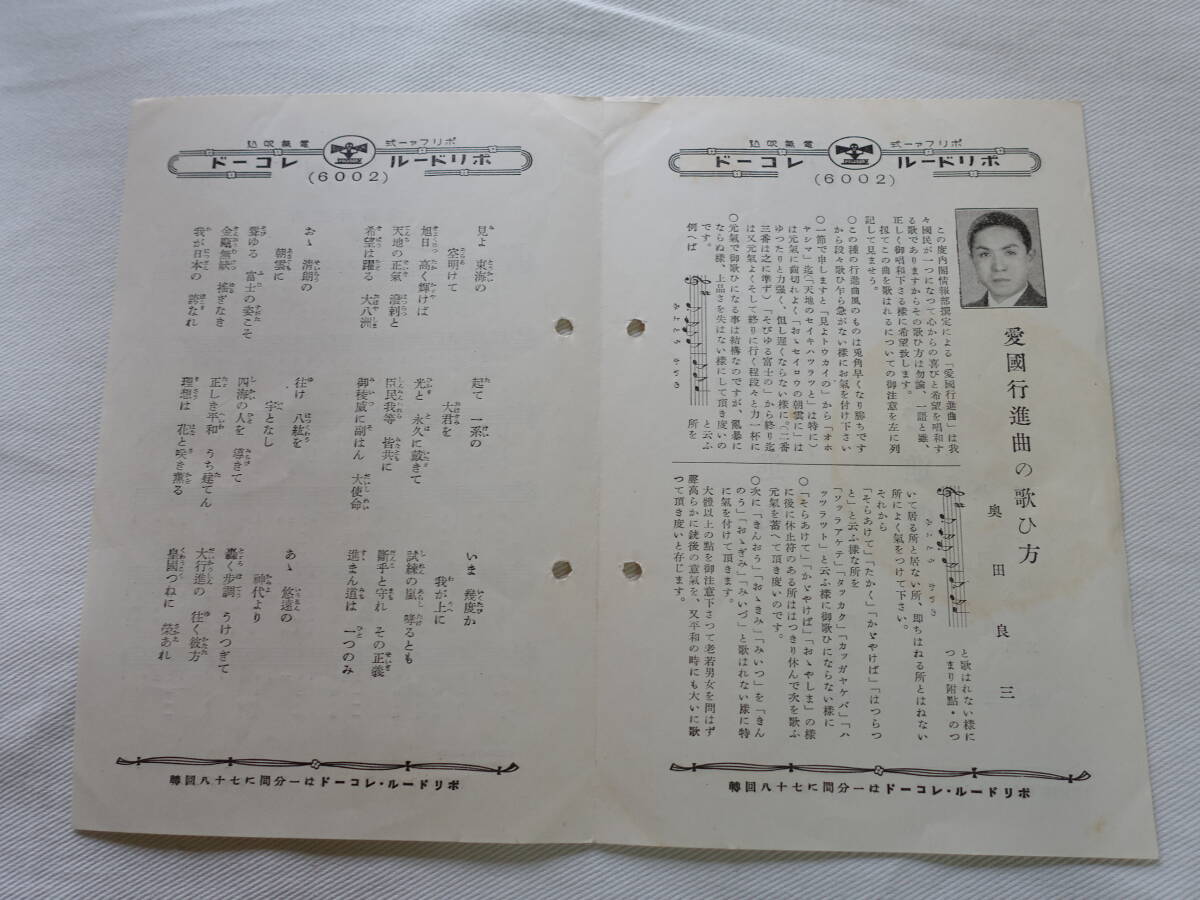 ポリファー式 電氣吹込
ポリドール レコード
(6002)
愛國行進曲の歌ひ方
奥田良三
この度内閣情報部撰定による「愛國行進曲」は我
々國民が一つになつて心からの喜びと希望を唱和す
る歌でありますからその歌ひ方は勿論、一語と雖、
正しく御唱和下さる樣に希望致します。
扨てこの曲を歌はれるについての御注意を左に列
記して見ませう。
○この種の行進曲風のものは兎角早くなり勝ちです
から段々歌ひ乍ら急がない樣にお氣を付け下さい
○一節で申しますと「見よトウカイの」から「オホ
ヤシマ」迄(「天地のセイキハツラツと」は特に)
は元氣に齒切れよく「おゝセイロウの朝雲に」は
ゆつたりと力強く、但し遲くならない樣に(二番
三番は之に準ず)「そびゆる富士の」から終り迄
は又元氣よくそして終りに行く程段々と力一杯に
○元氣で御歌ひになる事は結構なのですが、亂暴に
ならぬ樣、上品さを失はない樣にして頂き度いの
です。
例へば
みよとう かいの
と云ふ
所を
みよとう かいの
と歌はれない樣に
つまり附點・のつ
いて居る所と居ない所、即ちはねる所とはねない
所によく氣をつけて下さい。
それから
「そらあけて」「たかく」「かゞやけば」「はつらつ
と」と云ふ樣な所を
「ソッラアケテ」「タッカク」「カッガヤケバ」「ハ
ッツラツト」と云ふ樣に御歌ひにならない樣に
○「そらあけて」「かゞやけば」「おゝやしま」の樣
に後に休止符のある所ははつきり休んで次を歌ふ
元氣を蓄へて頂き度いのです。
○次に「きんおう」「おゝきみ」「みいつ」を「きん
のう」「おゝぎみ」「みいづ」と歌はれない樣に特
に氣を付けて頂きます。
大體以上の點を御注意下さつて老若男女を問はず
聲高らかに銃後の意氣を、又平和の時にも大いに歌
つて頂き度いと存じます。
ポリドール・レコードは一分間に七十八回轉
ポリファー式 電氣吹込
ポリドール レコード
(6002)
見よ 東海の
空明けて
旭日 高く輝けば
天地の正氣 潑剌と
希望は躍る 大八洲
おゝ 淸朗の
朝雲に
聳ゆる 富士の姿こそ
金甌無缺 搖ぎなき
我が日本の 誇なれ
起て 一系の
大君を
光と 永久に戴きて
臣民我等 皆共に
御稜威に副はん 大使命
往け 八紘を
宇となし
四海の人を 導きて
正しき平和 うち建てん
理想は 花と咲き薫る
いま 幾度か
我が上に
試練の嵐 哮るとも
斷乎と守れ その正義
進まん道は 一つのみ
あゝ 悠遠の
神代より
轟く步調 うけつぎて
大行進の 往く彼方
皇國つねに 榮あれ
ポリドール・レコードは一分間に七十八回轉